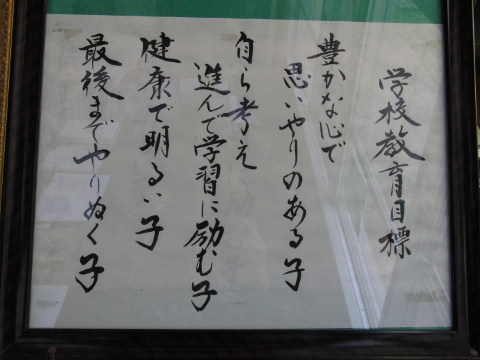 学校教育目標
豊かな心で
思いやりのある子
自ら考え
進んで学習に励む子
健康で明るい子
最後までやりぬく子